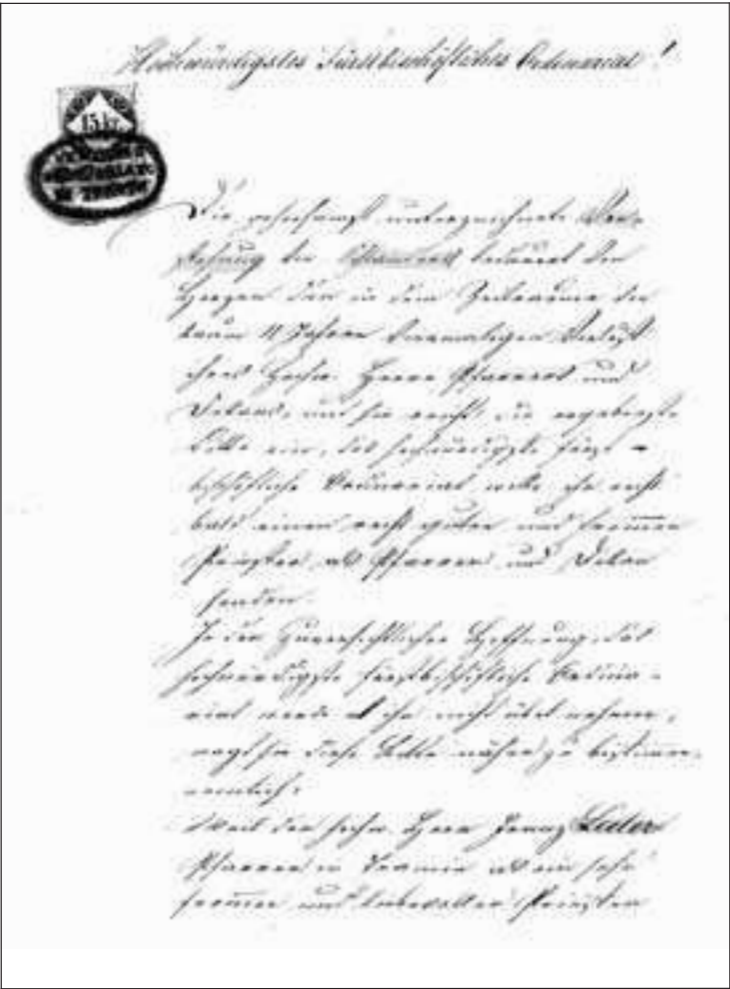 Hochwürdigstes Fürstbischöfliches Ordinariat!
15 kr.
Die gehorsamst unterzeichnete Vor-
stehung die Schlanders bedauert von
Herzen den in dem Zeitraume von
kaum 11 Jahren viermaligen Verlust
ihres hochw. Herrn Pfarrers und
Dekans, und sie reicht die ergebenste
Bitte ein, das hochwürdigste fürst-
bischöfliche Ordinariat wolle ihr recht
bald einen recht guten und frommen
Priester als Pfarrer und Dekan
senden.
In der zuversichtlichen Hoffnung, das
hochwürdigste fürstbischöfliche Ordina-
riat werde es ihr nicht übel nehmen,
wagt sie diese Bitte näher zu bestimmen,
nemlich:
Weil der hochw. Herr Franz
Pfarrer in Tramin als ein sehr
frommer und liebevoller Priester